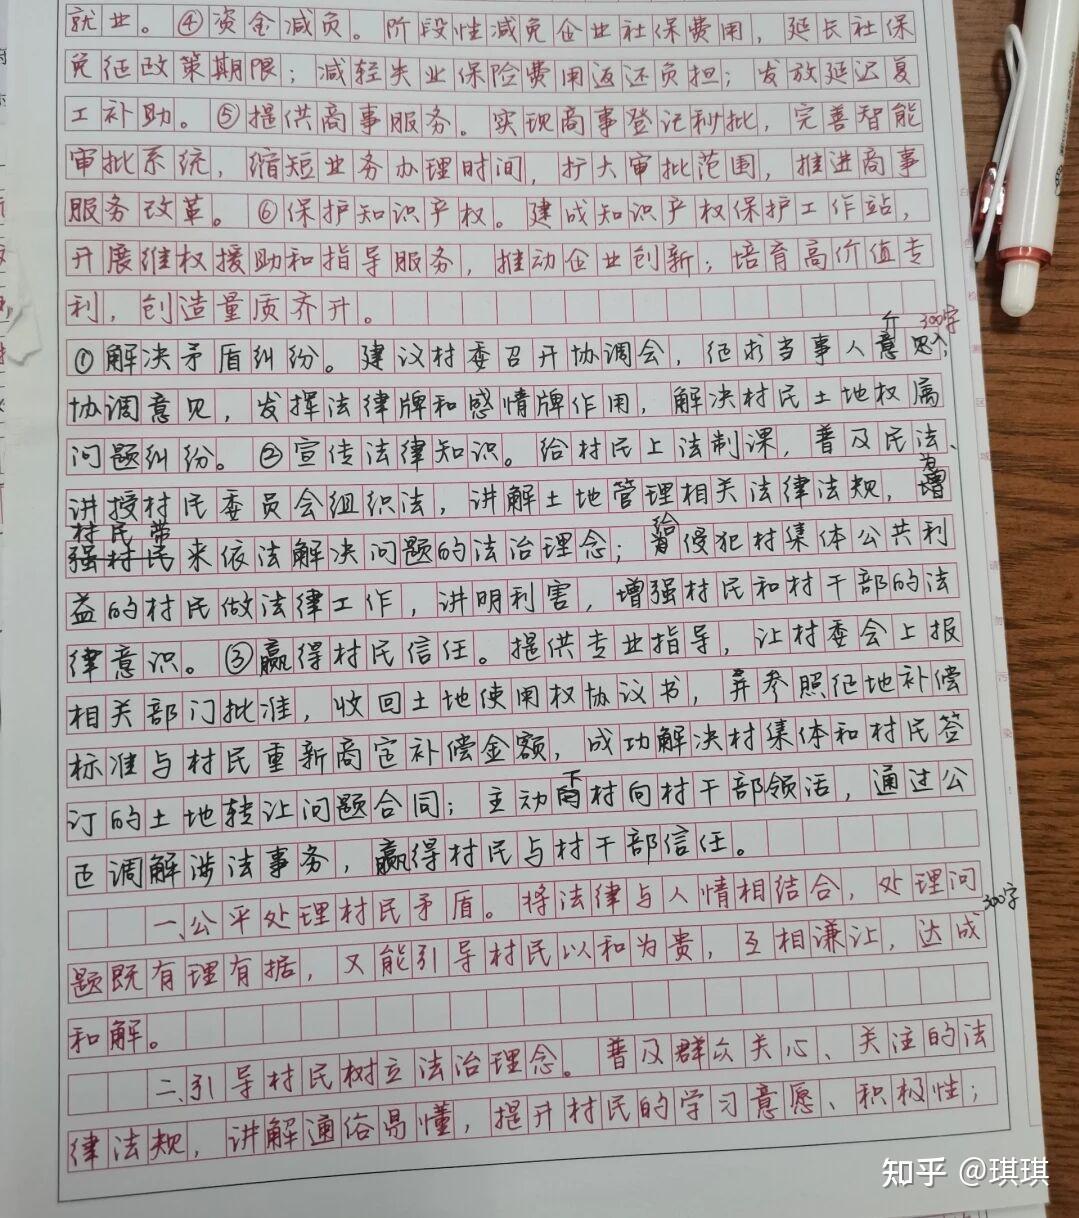 就业。④资金减负。阶段性减免企业社保费用，延长社保
免征政策期限；减轻失业保险费用返还负担；发放延迟复
工补助。⑤提供商事服务。实现商事登记秒批，完善智能
审批系统，缩短业务办理时间，扩大审批范围，推进商事
服务改革。⑥保护知识产权。建成知识产权保护工作站，
开展维权援助和指导服务，推动企业创新；培育高价值专
利，创造量质齐升。
300字
①解决矛盾纠纷。建议村委召开协调会，征求当事人意见；
协调意见，发挥法律牌和感情牌作用，解决村民土地权属
问题纠纷。②宣传法律知识。给村民上法制课，普及民法、
讲授村民委员会组织法，讲解土地管理相关法律法规，为增
村民带
强村民来依法解决问题的法治理念；给侵犯村集体公共利
益的村民做法律工作，讲明利害，增强村民和村干部的法
律意识。③赢得村民信任。提供专业指导，让村委会上报
相关部门批准，收回土地使用权协议书，并参照征地补偿
标准与村民重新商定补偿金额，成功解决村集体和村民签
订的土地转让问题合同；主动下村向村干部领活，通过公
正调解涉法事务，赢得村民与村干部信任。
300字
一、公平处理村民矛盾。将法律与人情相结合，处理问
题既有理有据，又能引导村民以和为贵，互相谦让，达成
和解。
二、引导村民树立法治理念。普及群众关心、关注的法
律法规，讲解通俗易懂，提升村民的学习意愿、积极性；
知乎 @琪琪